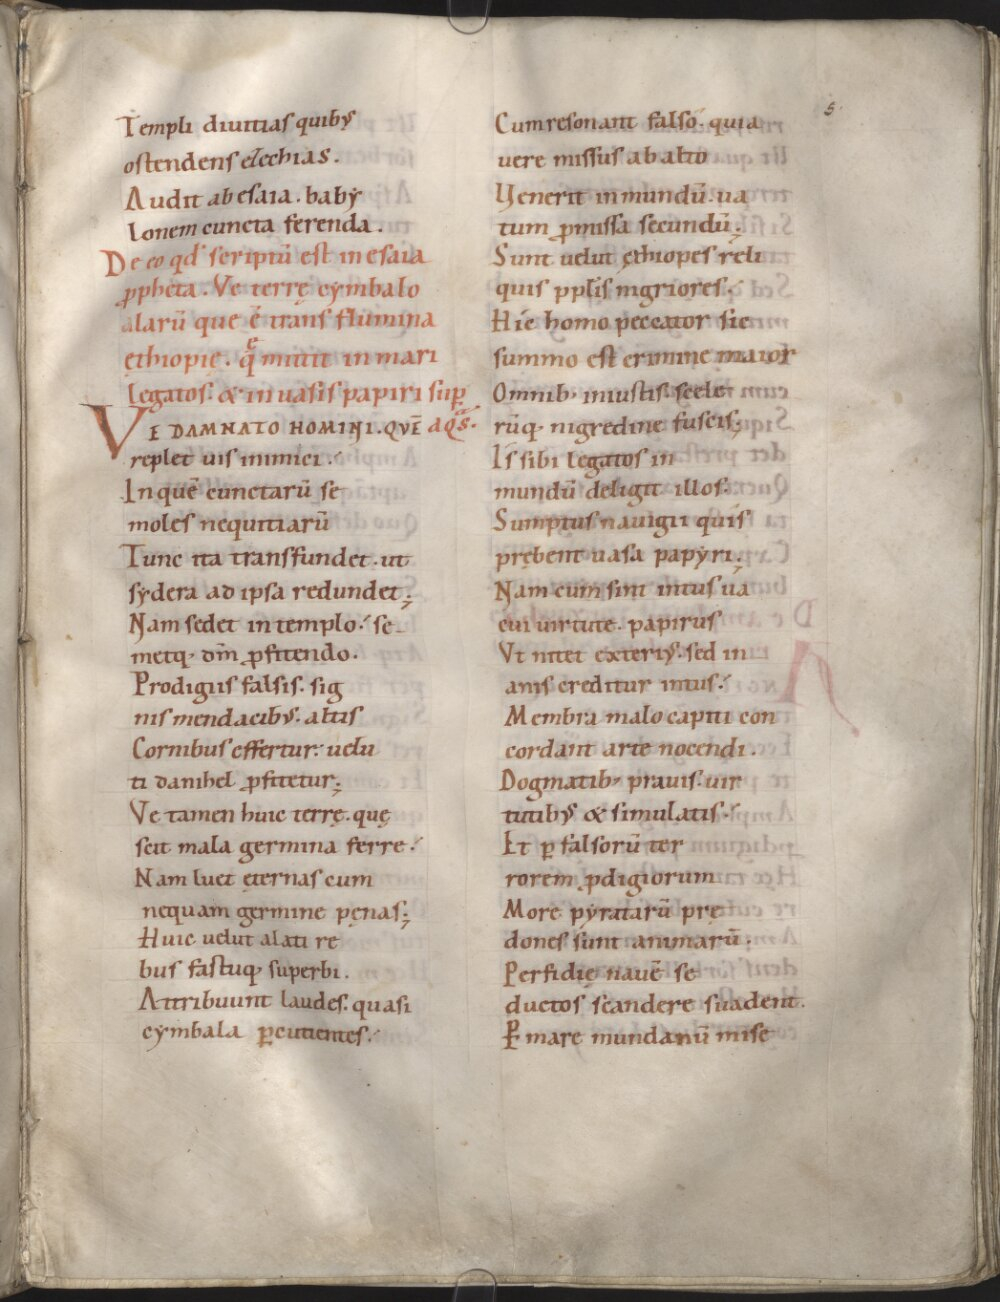 Templi diuitias quibꝰ
ostendens ezechias.
Audit ab esaia. babẏ
lonem cuncta ferenda.
De eo qd' scriptū est in esaia
ꝓpheta. Ve terrę cẏmbalo
alarū que ē trans flumina
ęthiopię. q̄ mittit in mari
legatos. & in uasis papiri suꝑ
VE DAMNATO HOMINI. QVĒ aq̄s.
replet uis inimici.
In quē cunctarū se
moles nequitiarū
Tunc ita transfundet. ut
sẏdera ad ipsa redundet;
Nam sedet in templo. se
metq; dm̄ ꝓfitendo.
Prodigiis falsis. sig
nis mendacibꝰ. altis
Cornibus effertur. uelu
ti danihel ꝓfitetur;
Ve tamen huic terrę. quę
scit mala germina ferre.
Nam luet ęternas cum
nequam germine pęnas;
Huic uelut alati re
bus fastuq; superbi.
Attribuunt laudes. quasi
cẏmbala ꝑcutientes.
5.
Cum resonant falso. quia
uere missus ab alto
Venerit in mundū. ua
tum ꝓmissa secundū;
Sunt uelut ęthiopes reli
quis pplis nigriores.
Hic homo peccator sic
summo est crimine maior
Omnib; iniustis. scele
rūq; nigredine fuscis;
Is sibi legatos in
mundū deligit illos.
Sumptus nauigii quis
prębent uasa papẏri;
Nam cum sint intus ua
cui uirtute. papirus
Vt nitet exteriꝰ. sed in
anis creditur intus.
Membra malo capiti con
cordant arte nocendi.
Dogmatib; prauis. uir
tutibꝰ & simulatis.
Et ꝑ falsorū ter
rorem ꝓdigiorum
More pẏratarū prę
dones sunt animarū.
Perfidię nauē se
ductos scandere suadent.
Ꝑ mare mundanū mise